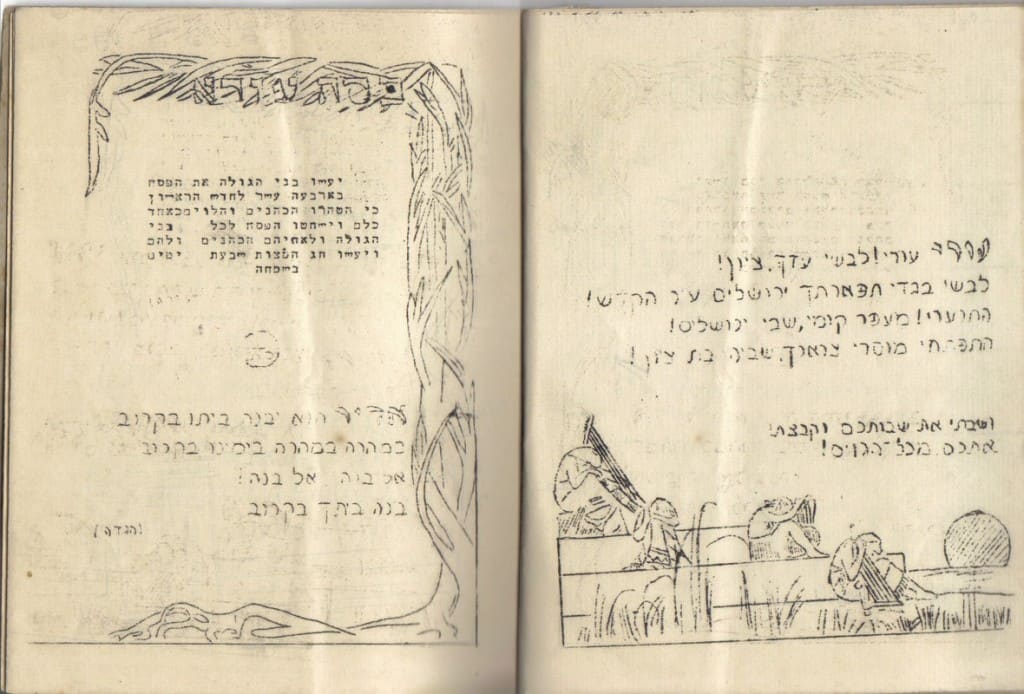 עורי עורי! לבשי עדך, ציון!
לבשי בגדי תפארתך ירושלים עיר הקדש!
התנערי! מעפר קומי, שבי ירושלים!
התפתחי מוסרי צוארך, שביה בת ציון!
ושבתי את שבותכם וקבצתי
אתכם מכל־הגוים!
פסח עזרא
יעשו בני הגולה את הפסח
בארבעה עשר לחדש הראשון
כי הטהרו הכהנים והלוים כאחד
כלם וישחטו הפסח לכל בני
הגולה ולאחיהם הכהנים ולהם
ויעשו חג המצות שבעת ימים
בשמחה
אדיר הוא יבנה ביתו בקרוב
במהרה במהרה בימינו בקרוב
אל בנה אל בנה!
בנה ביתך בקרוב
(הגדה)